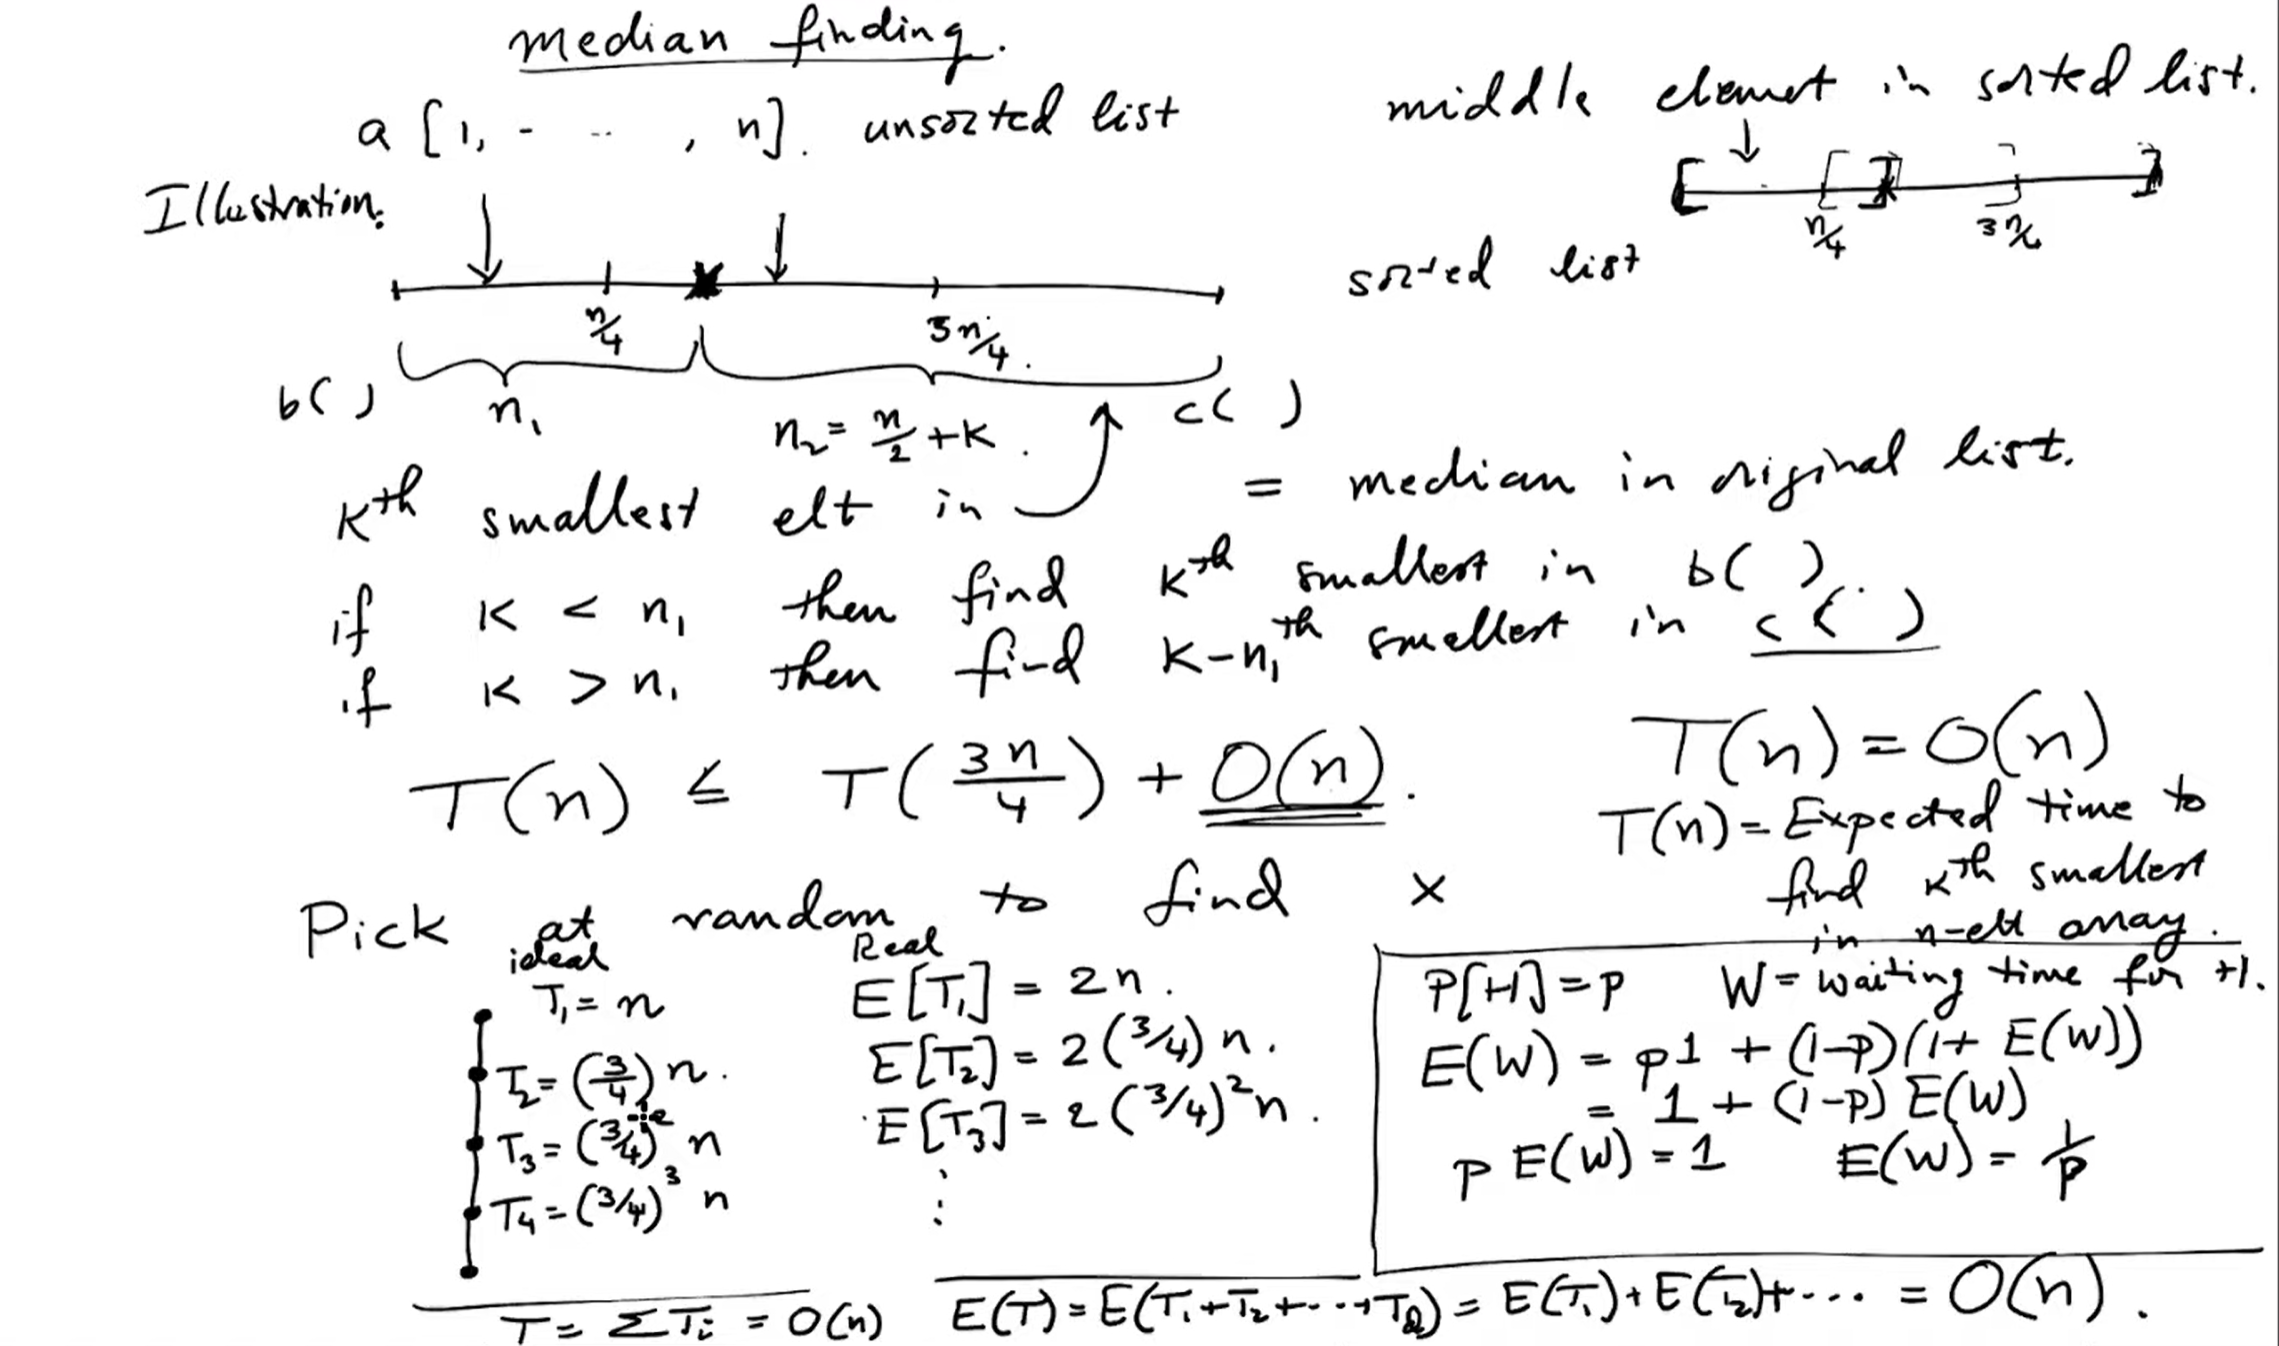 median finding.
a [1, - -- , n]. unsorted list
middle element in sorted list.
Illustration:
n/4
3n/4
sorted list
n/4
3n/4.
b( )
n₁
n₂ = n/2 + K.
c( )
Kth smallest elt in
= median in original list.
if K < n₁ then find Kth smallest in b( ).
if K > n₁ then find K-n₁th smallest in c( )
T(n) ≤ T(3n/4) + O(n).
T(n) = O(n)
T(n) = Expected time to
find Kth smallest
in n-elt array.
Pick at random to find x
ideal
T₁ = n
T₂ = (3/4) n.
T₃ = (3/4)² n
T₄ = (3/4)³ n
T = ΣTᵢ = O(n)
Real
E[T₁] = 2n.
E[T₂] = 2(3/4) n.
E[T₃] = 2(3/4)² n.
⋮
P[H] = p W = waiting time for H.
E(W) = p1 + (1-p)(1+ E(W))
= 1 + (1-p) E(W)
p E(W) = 1 E(W) = 1/p
E(T) = E(T₁+T₂+---+T) = E(T₁) + E(T₂)+ ... = O(n).